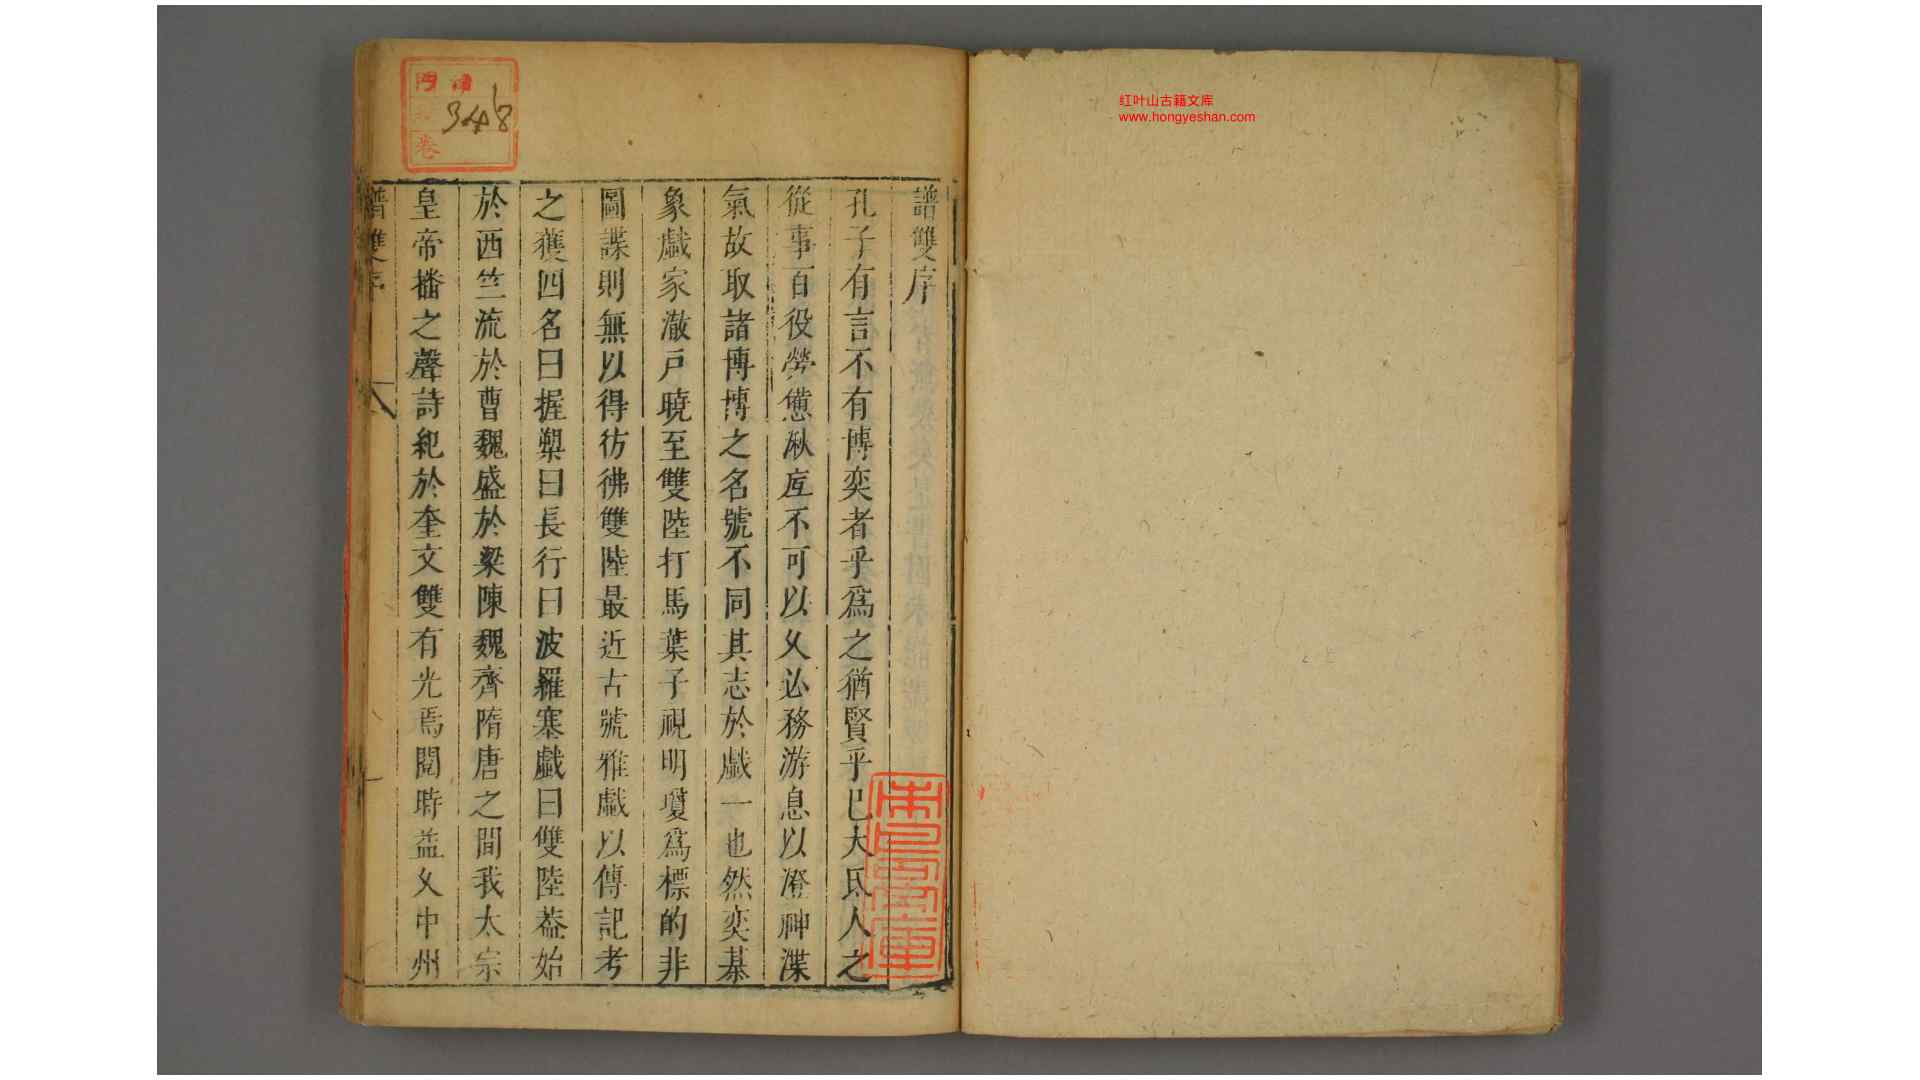 红叶山古籍文库
www.hongyeshan.com
譜雙序
孔子有言不有博奕者乎爲之猶賢乎已大氐人之
從事百役勞憊湫底不可以久必務游息以澄神渫
氣故取諸博博之名號不同其志於戲一也然奕棊
象戲家澈戸曉至雙陸打馬葉子視明瓊爲標的非
圖諜則無以得彷彿雙陸最近古號雅戲以傳記考
之獲四名曰握槊曰長行曰波羅塞戲曰雙陸葢始
於西竺流於曹魏盛於梁陳魏齊隋唐之間我太宗
皇帝播之聲詩紀於奎文雙有光焉閱時益久中州
譜雙序
一
門
卷
348